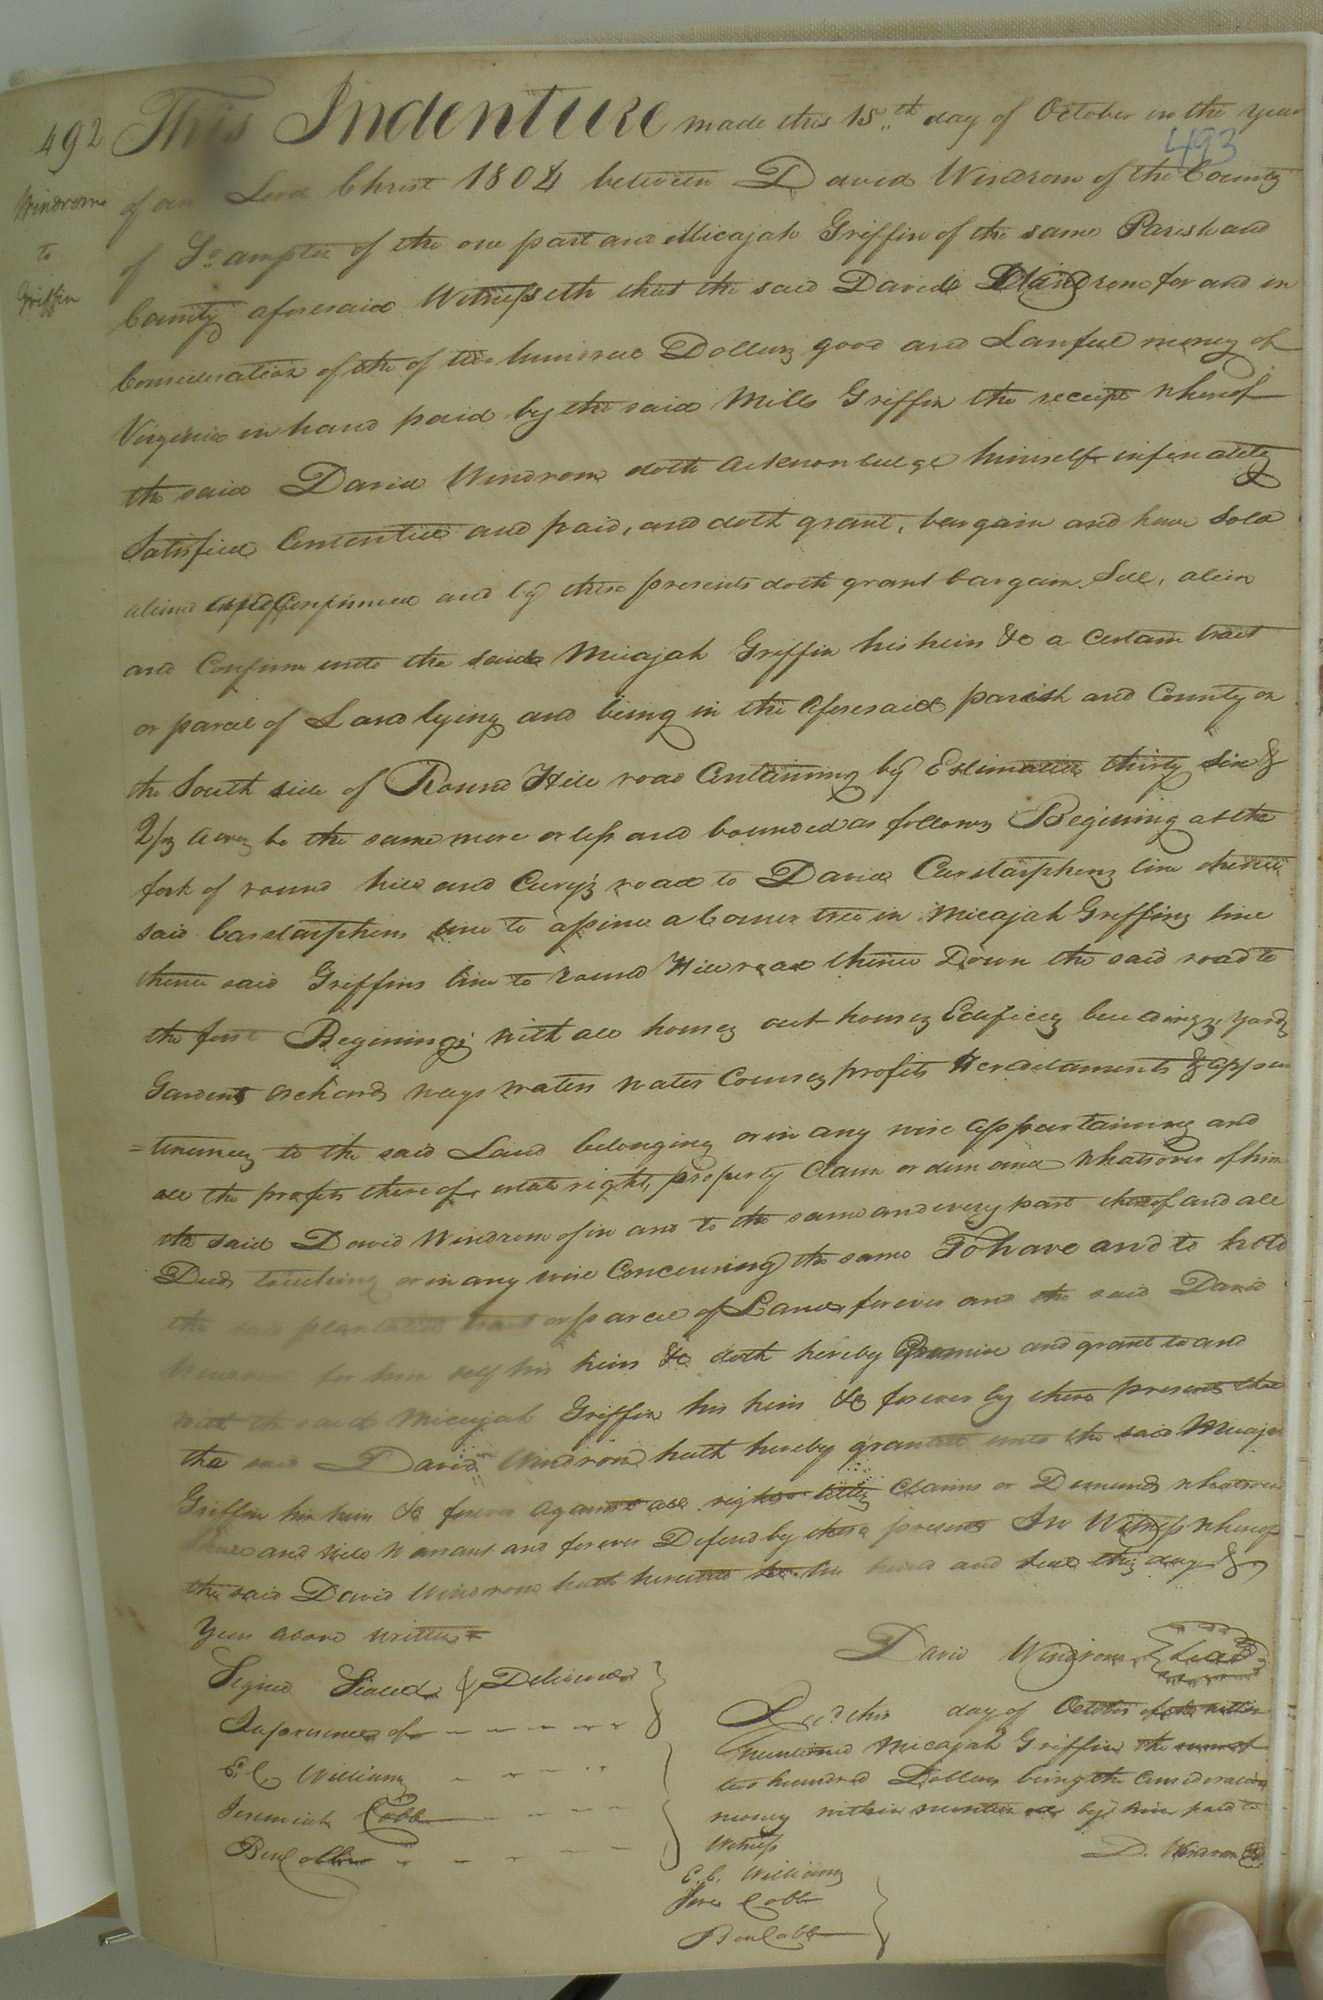 492
493
Windrom
to
Griffin
This Indenture made this 15th day of October in the Year
of our Lord Christ 1804 between David Windrom of the County
of So.ampton of the one part and Micajah Griffin of the same Parish and
County aforesaid Witnesseth that the said David Windrom for and in
Consideration of the of two hundred Dollars good and Lawful money of
Virginia in hand paid by the said Mills Griffin the receipt whereof
the said David Windrom doth acknowledge himself
Satisfied Contented and paid, and doth grant, bargain and have Sold
aliened Confirmed and by these presents doth grant bargain Sell, alien
and Confirm unto the said Micajah Griffin his heirs &c a Certain tract
or parcel of Land lying and being in the aforesaid parish and County on
the South side of Round Hill road Containing by Estimation thirty six &
2/3 acres be the same more or less and bounded as follows Begining at the
fork of round hill and Cury's road to David Carstarphens line thence
said Carstarphens line to a pine a Corner tree in Micajah Griffins line
thence said Griffins line to round Hill road thence Down the said road to
the first Begining with all houses out houses Edifices buildings yards
Gardens orchards ways waters water Courses profits Hereditaments & appur
=tenances to the said Land belonging or in any wise appertaining and
all the profits thereof, estate right, property Claim or demand whatsoever of him
the said David Windrom of in and to the same and every part thereof and all
Deeds touching or in any wise Concerning the same To have and to hold
the said plantation tract or parcel of Land forever and the said David
Windrom for him self his heirs &c doth hereby Promise and grant to and
with the said Micajah Griffin his heirs &c forever by these presents that
the said David Windrom hath hereby granted unto the said Micajah
Griffin his heirs &c forever against all rights titles Claims or Demands whatsoever
Shall and will warrant and forever Defend by these presents In Witness whereof
the said David Windrom hath hereunto set his hand and Seal this day &
Year above written
David Windrom Seal
Signed Sealed & Delivered
In presence of
E. C. Williams
Jeremiah Cobb
Ben Cobb
Rec'd this day of October of the within
mentioned Micajah Griffin the sum of
two hundred Dollars being the Consideration
money within mentioned by him paid to
Witness
D. Windrom
E. C. Williams
Jere Cobb
Ben Cobb